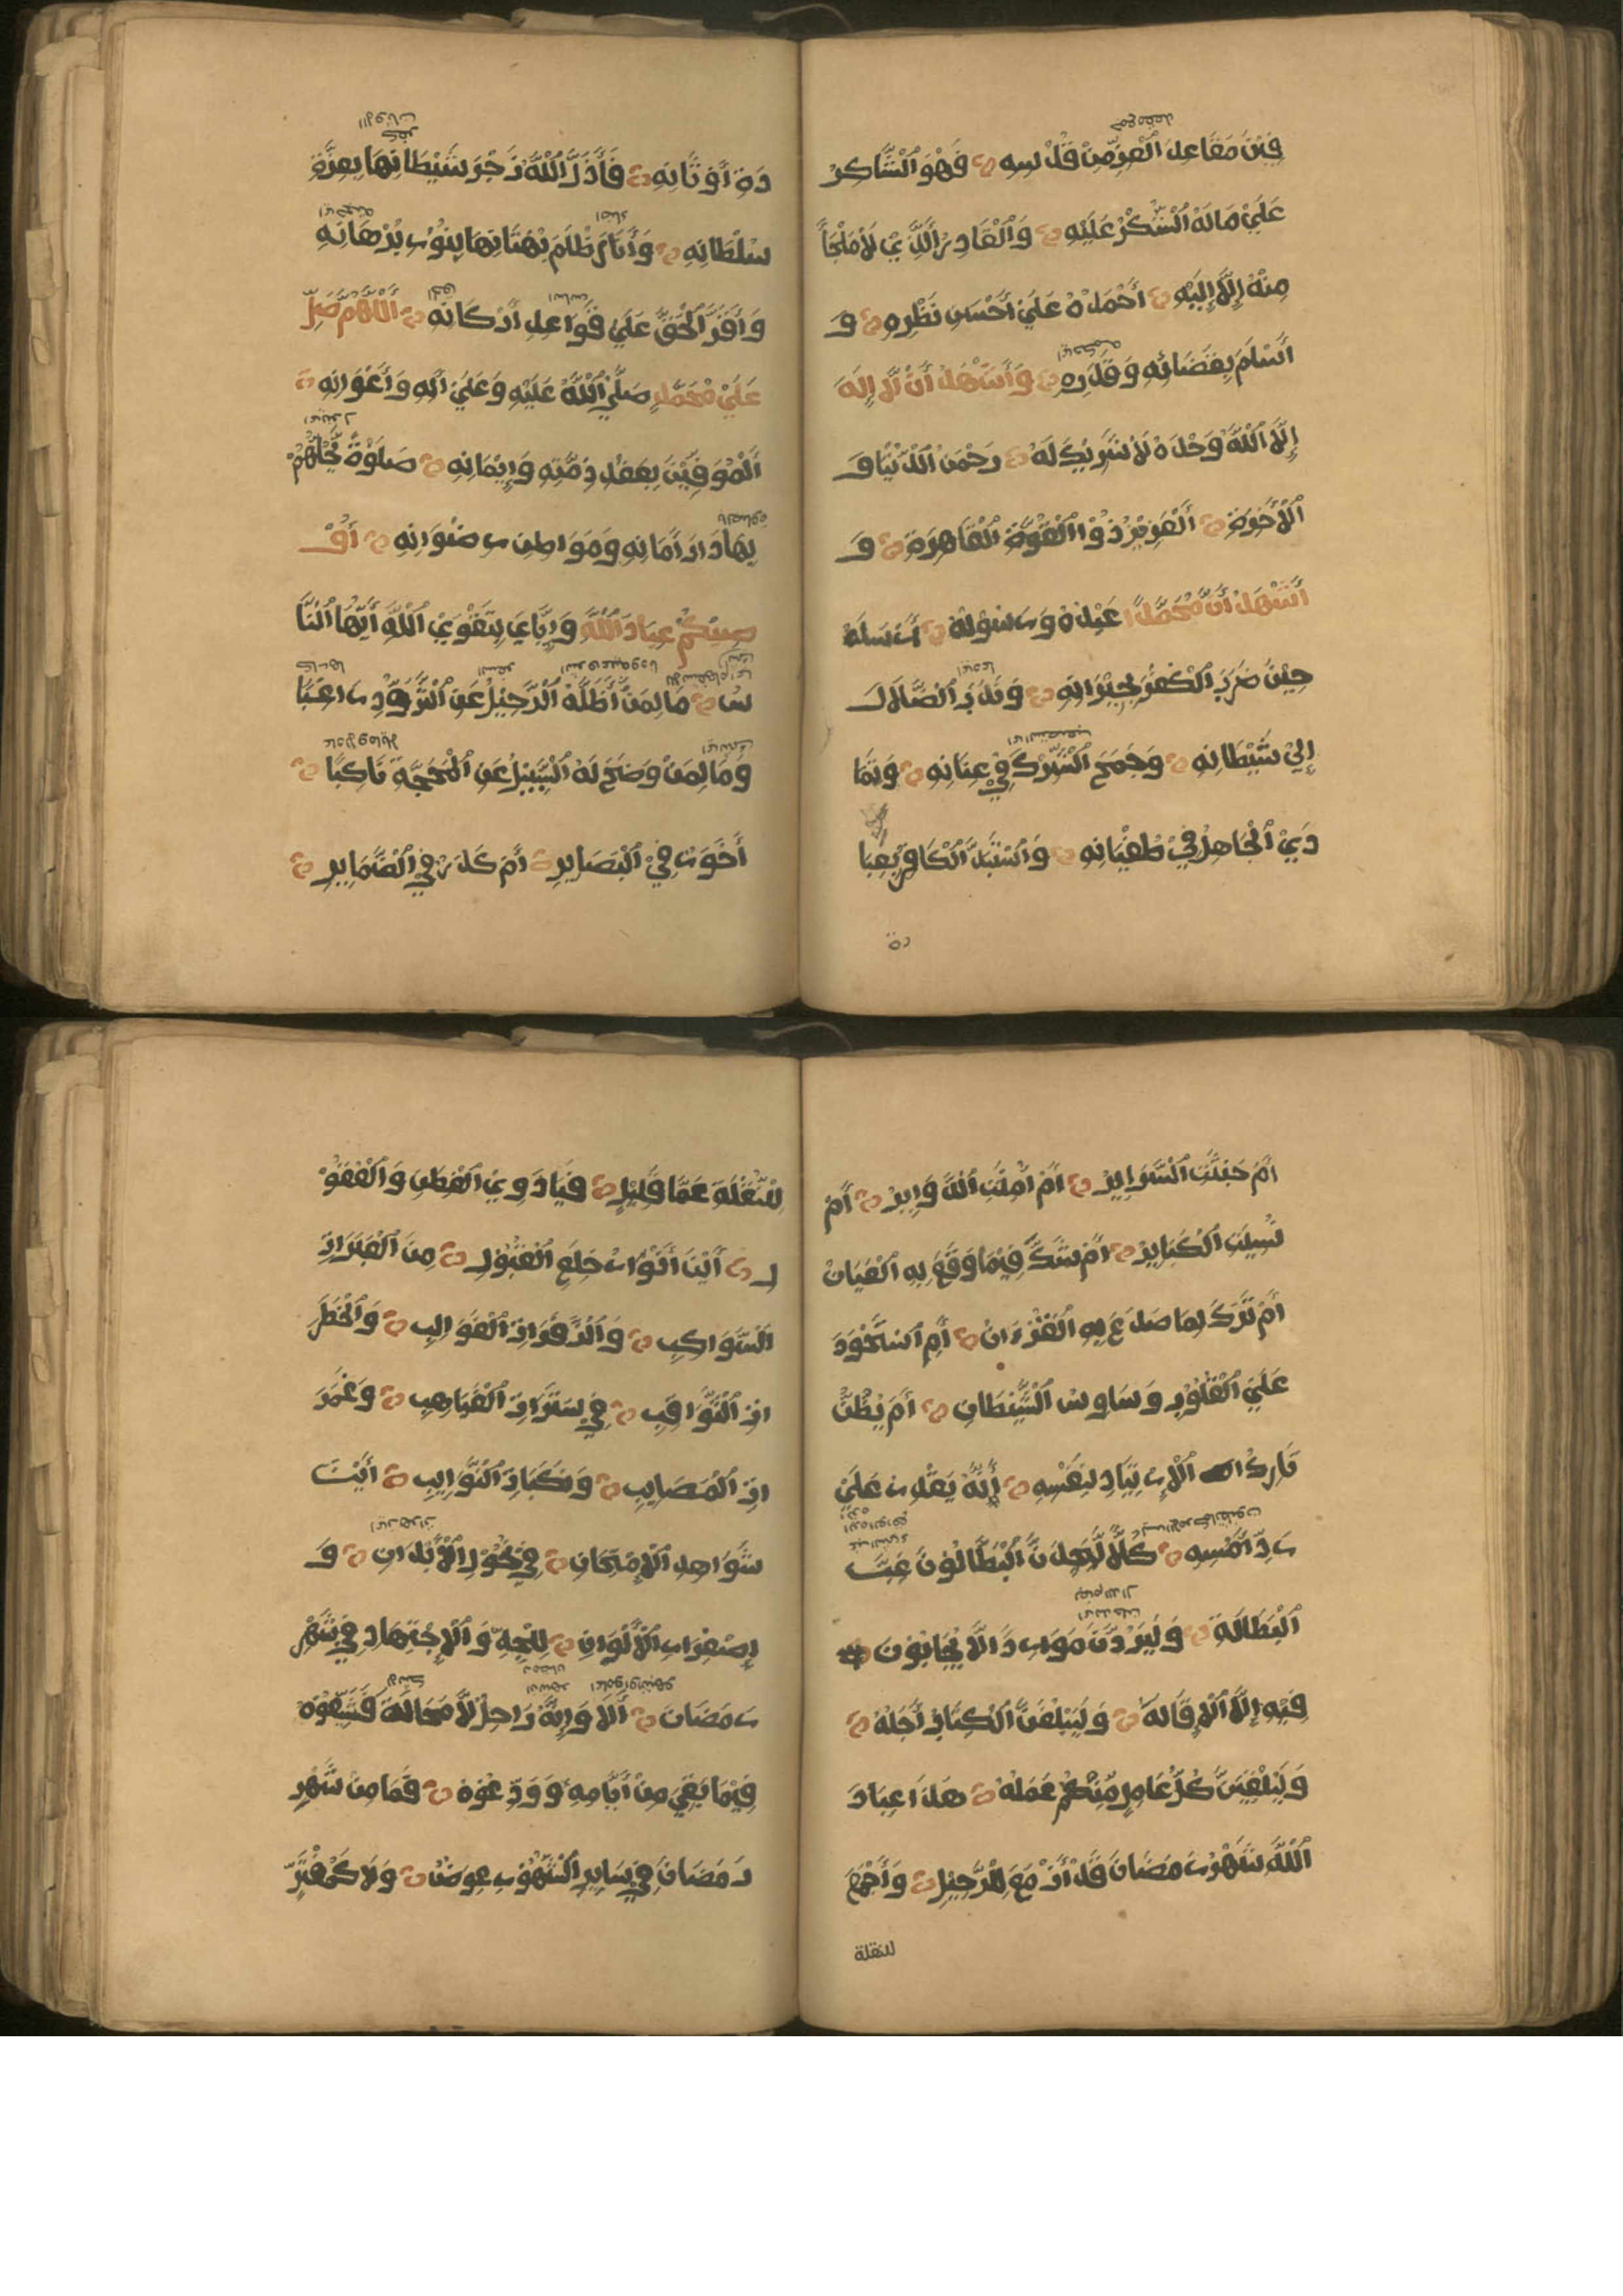 فِيْنَ مَقَاعِدَ الْعِزِّ مِنْ قُدْسِهِ فَهُوَ الْشَّاكِرُ
عَلَيْ مَا لَهُ الْشُّكْرُ عَلَيْهِ وَالْقَادِرُ الَّذِيْ لَا مَلْجَأَ
مِنْهُ إِلَّا إِلَيْهِ أَحْمَدُهُ عَلَيْ أَحْسَنِ نَظَرِهِ وَ
أُسَلِّمُ بِقَضَائِهِ وَقَدَرِهِ وَأَشْهَدُ أَنْ لَّا إِلَهَ
إِلَّا اللَّهُ وَحْدَهُ لَا شَرِيْكَ لَهُ رَحْمَنُ الْدُّنْيَا وَ
الْأَخِرَةِ الْعَزِيْزُ ذُوْ الْقُوَّةِ الْقَاهِرَةِ وَ
أَشْهَدُ أَنَّ مُحَمَّدًا عَبْدُهُ وَرَسُوْلُهُ أَرْسَلَهُ
حِيْنَ ضَرَبَ الْكُفْرُ بِجِيْرَانِهِ وَنَدَبَ الْضَّلَالُ
إِلَيْ شَيْطَانِهِ وَجَمَحَ الْشِّرْكُ فِيْ عِنَانِهِ وَتَمَا
دَيْ الْجَاهِلُ فِيْ طُغْيَانِهِ وَاسْتَبَدَّ الْكَافِرُ بِعِبَا
دَةِ أَوْثَانِهِ فَأَذَلَّ اللَّهُ زَجْرَ شَيْطَانِهَا بِعِزَّةِ
سُلْطَانِهِ وَأَنَارَ ظُلَمَ بُهْتَانِهَا بِنُوْرِ بُرْهَانِهِ
وَأَقَرَّ الْحَقَّ عَلَيْ قَوَاعِدِ أَرْكَانِهِ اللَّهُمَّ صَلِّ
عَلَيْ مُحَمَّدٍ صَلَّيْ اللَّهُ عَلَيْهِ وَعَلَيْ آلِهِ وَأَعْوَانِهِ
الْمُوَفِّيْنَ بِعَقْدِ ذِمَّتِهِ وَإِيْمَانِهِ صَلَوةً تُحِلُّهُمْ
بِهَا دَارَ أَمَانِهِ وَمَوَاطِنَ رِضْوَانِهِ أُوْ
صِيْكُمْ عِبَادَ اللَّهِ وَإِيَّايَ بِتَقْوَيْ اللَّهِ أَيُّهَا الْنَّا
سُ مَا لِمَنْ أَظَلَّهُ الْرَّحِيْلُ عَنِ الْتَّزَوُّدِ رَاغِبًا
وَمَا لِمَنْ وَضَحَ لَهُ الْسَّبِيْلُ عَنِ الْمَحَجَّةِ نَاكِبًا
أَخَوَرٌ فِيْ الْبَصَايِرِ أَمْ كَدَرٌ فِيْ الْضَّمَايِرِ
أَمْ خَبُثَتِ الْسَّرَايِرُ أَمْ أُمِنَتِ الْدَّوَايِرُ أَمْ
نُسِيَتِ الْكَبَايِرُ أَمْ شَكٌّ فِيْمَا وَقَعَ بِهِ الْعِيَانُ
أَمْ تَرْكٌ لِمَا صَدَعَ بِهِ الْقُرْءَانُ أَمِ اسْتَحْوَذَ
عَلَيْ الْقُلُوْبِ وَسَاوِسُ الْشَّيْطَانِ أَمْ يَظُنُّ
تَارِكُ الْاِرْتِيَادِ لِنَفْسِهِ أَنَّهُ يَقْدِرُ عَلَيْ
رَدِّ أَمْسِهِ كَلَّا لَيَجِدَنَّ الْبَطَّالُوْنَ غِبَّ
الْبَطَالَةِ وَلَيَرِدُنَّ مَوَارِدَ لَا يُجَابُوْنَ
فِيْهِ إِلَّا الْإِقَالَةَ وَلَيَبْلُغَنَّ الْكِتَابُ أَجَلَهُ
وَلَيَلْقَيَنَّ كُلُّ عَامِلٍ مِّنْكُمْ عَمَلَهُ هَذَا عِبَادَ
اللَّهِ شَهْرُ رَمَضَانَ قَدْ أَزْمَعَ الْرَّحِيْلَ وَأَجْمَعَ
للنقلة
لِلنُّقْلَةِ عَمَّا قَلِيْلٍ فَيَا ذَوِيْ الْفِطَنِ وَالْعُقُوْ
لِ أَيْنَ أَنْوَارُ خِلَعِ الْقَبُوْلِ مِنَ الْعَبَرَاتِ
الْسَّوَاكِبِ وَالْزَّفَرَاتِ الْغَوَالِبِ وَالْخَطَرَ
اتِ الْثَّوَاقِبِ فِيْ سَتَرَاتِ الْغَيَاهِبِ وَغَمَرَ
اتِ الْمَصَايِبِ وَنَكَبَاتِ الْنَّوَايِبِ أَيْنَ
شَوَاهِدُ الْاِمْتِحَانِ فِيْ نُحُوْلِ الْأَبْدَانِ وَ
اِصْفِرَارِ الْأَلْوَانِ لِلْجِدِّ وَالْاِجْتِهَادِ فِيْ شَهْرِ
رَمَضَانَ أَلَا وَإِنَّهُ رَاحِلٌ لَا مَحَالَةَ فَشَيِّعُوْهُ
فِيْمَا بَقِيَ مِنْ أَيَّامِهِ وَوَدِّعُوْهُ فَمَا مِنْ شَهْرِ
رَمَضَانَ فِيْ سَايِرِ الْشُّهُوْرِ عِوَضٌ وَلَا كَمُفْتَرَ